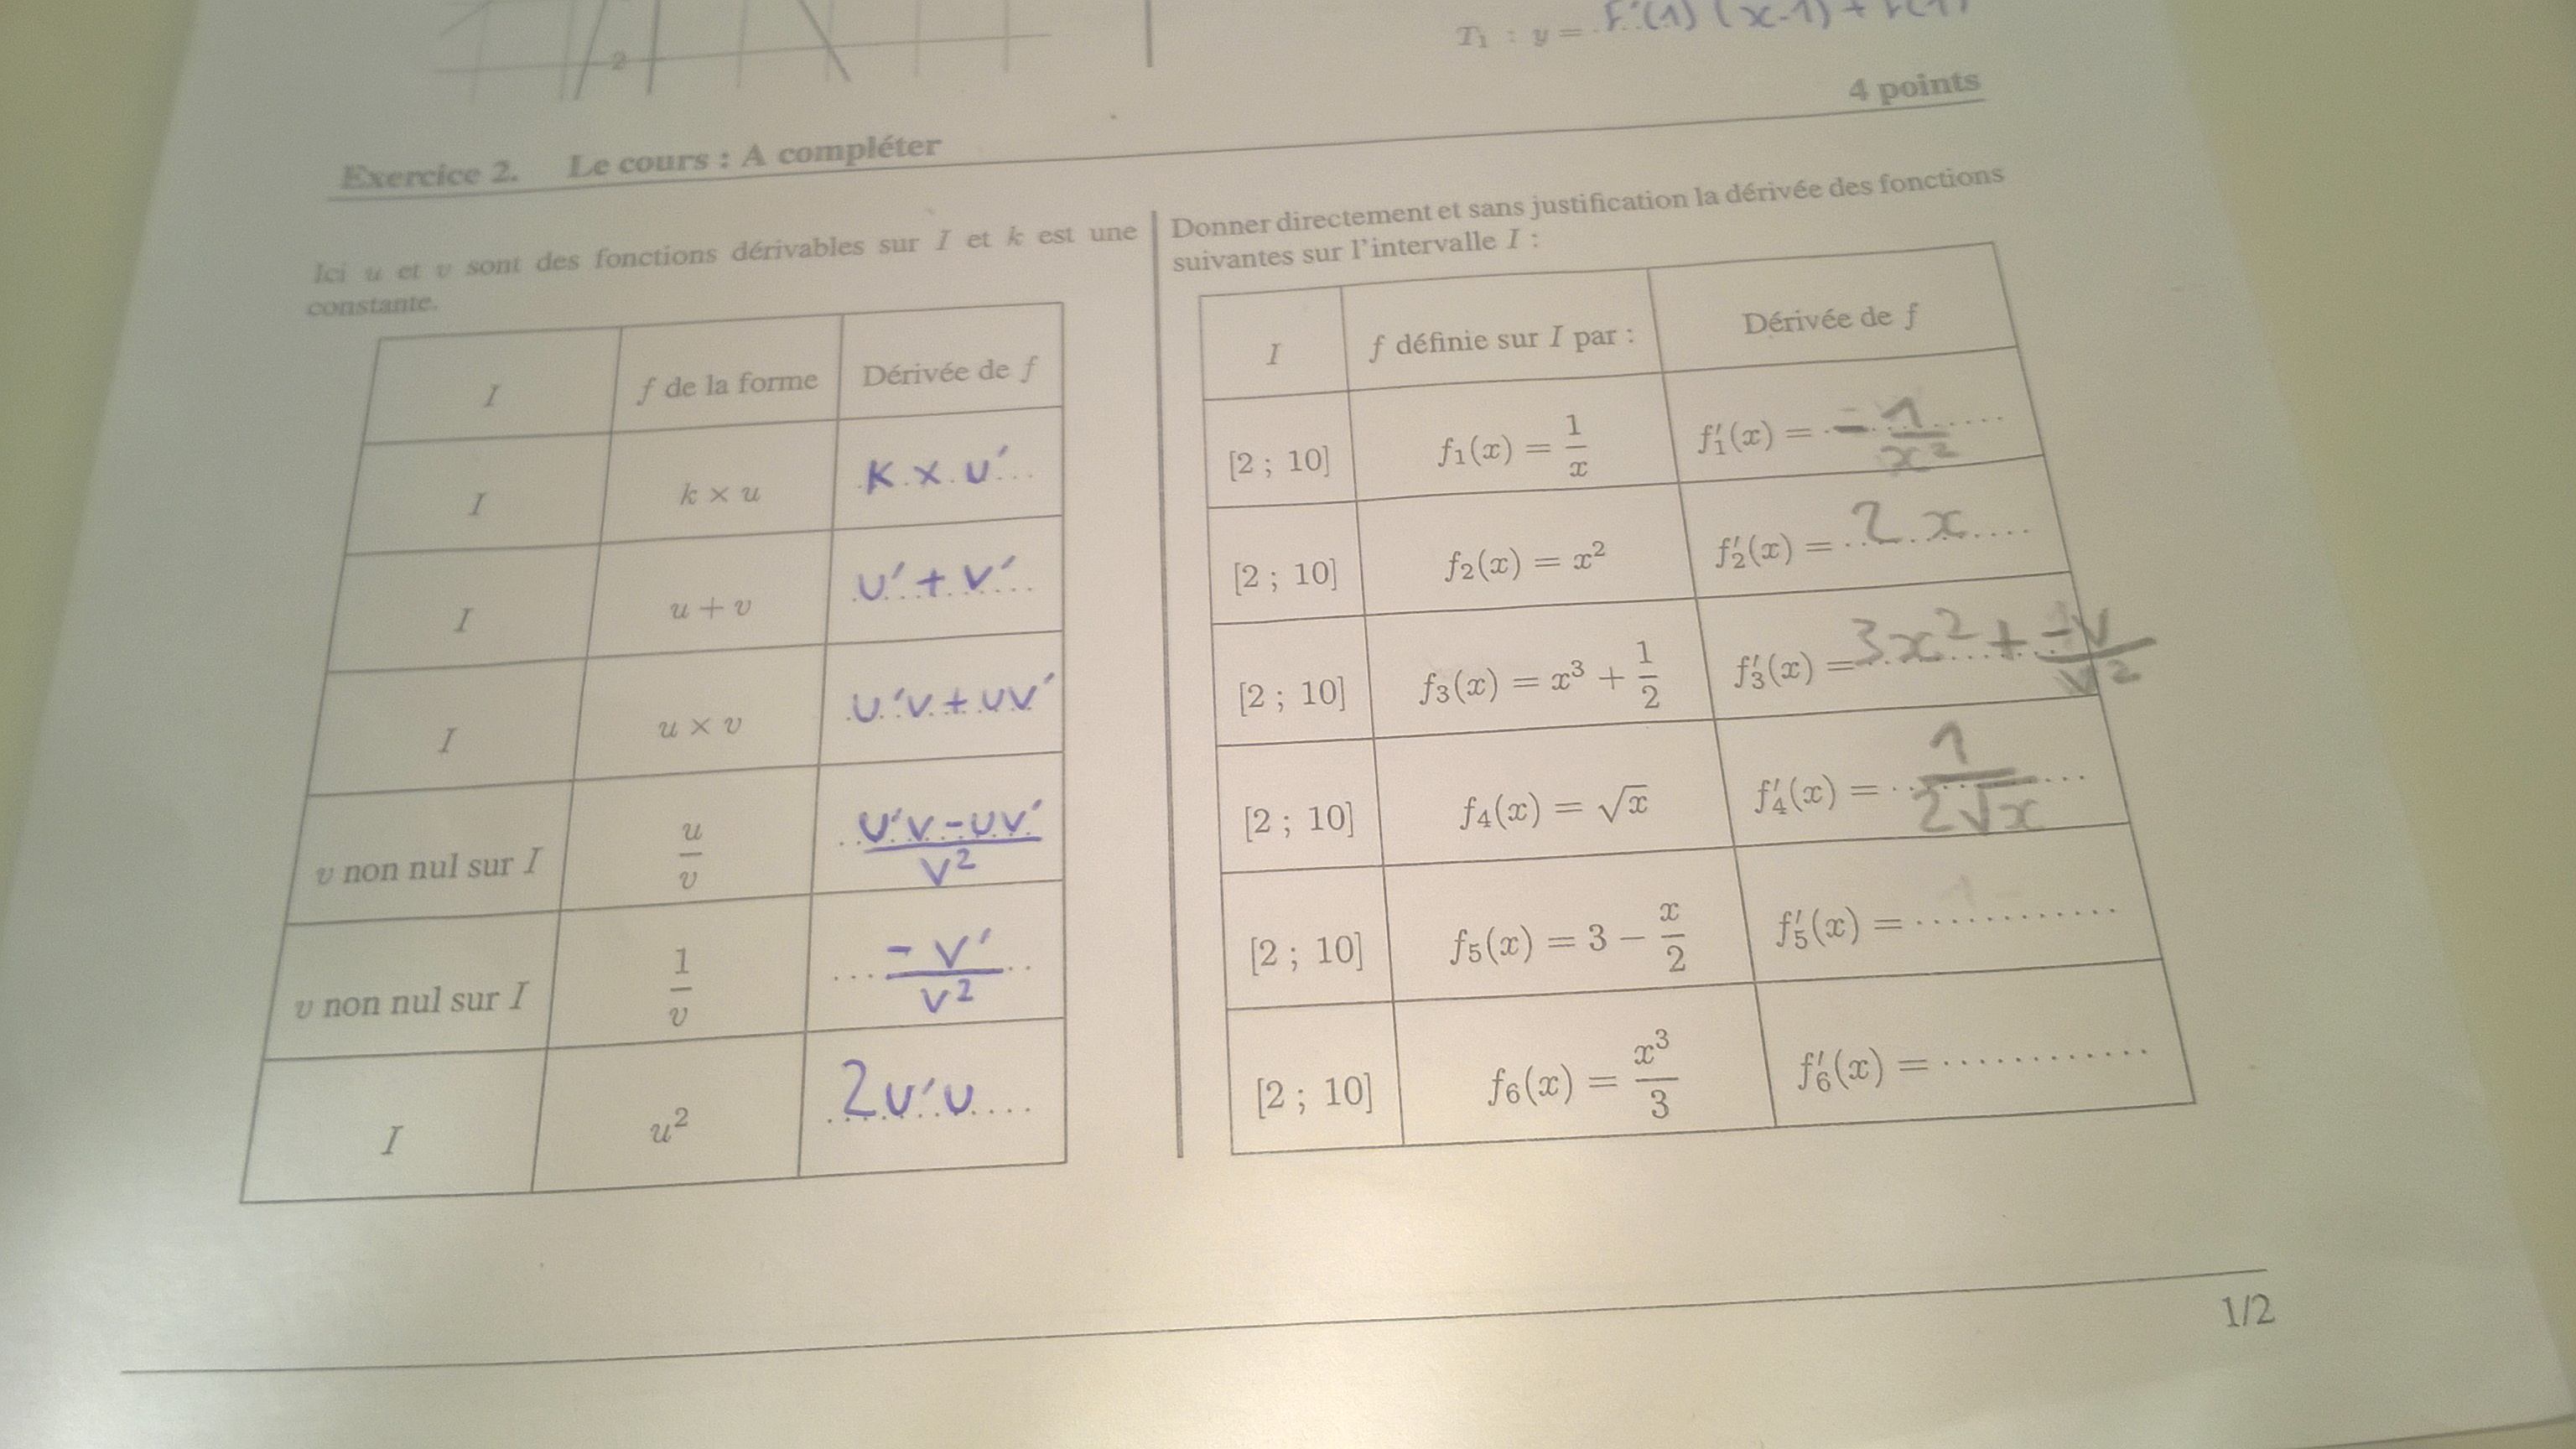 2
T₁ : y = F'(1) (x-1) + F(1)
4 points
Exercice 2. Le cours : A compléter
Ici u et v sont des fonctions dérivables sur I et k est une
constante.
I | f de la forme | Dérivée de f
I | k × u | K × U'
I | u + v | U' + V'
I | u × v | U'V + UV'
v non nul sur I | u/v | U'V - UV' / V²
v non nul sur I | 1/v | - V' / V²
I | u² | 2U'U
Donner directement et sans justification la dérivée des fonctions
suivantes sur l'intervalle I :
I | f définie sur I par : | Dérivée de f
[2 ; 10] | f₁(x) = 1/x | f₁'(x) = - 1/x²
[2 ; 10] | f₂(x) = x² | f₂'(x) = 2x
[2 ; 10] | f₃(x) = x³ + 1/2 | f₃'(x) = 3x² + -V/V²
[2 ; 10] | f₄(x) = √x | f₄'(x) = 1/2√x
[2 ; 10] | f₅(x) = 3 − x/2 | f₅'(x) = ............
[2 ; 10] | f₆(x) = x³/3 | f₆'(x) = ............
1/2